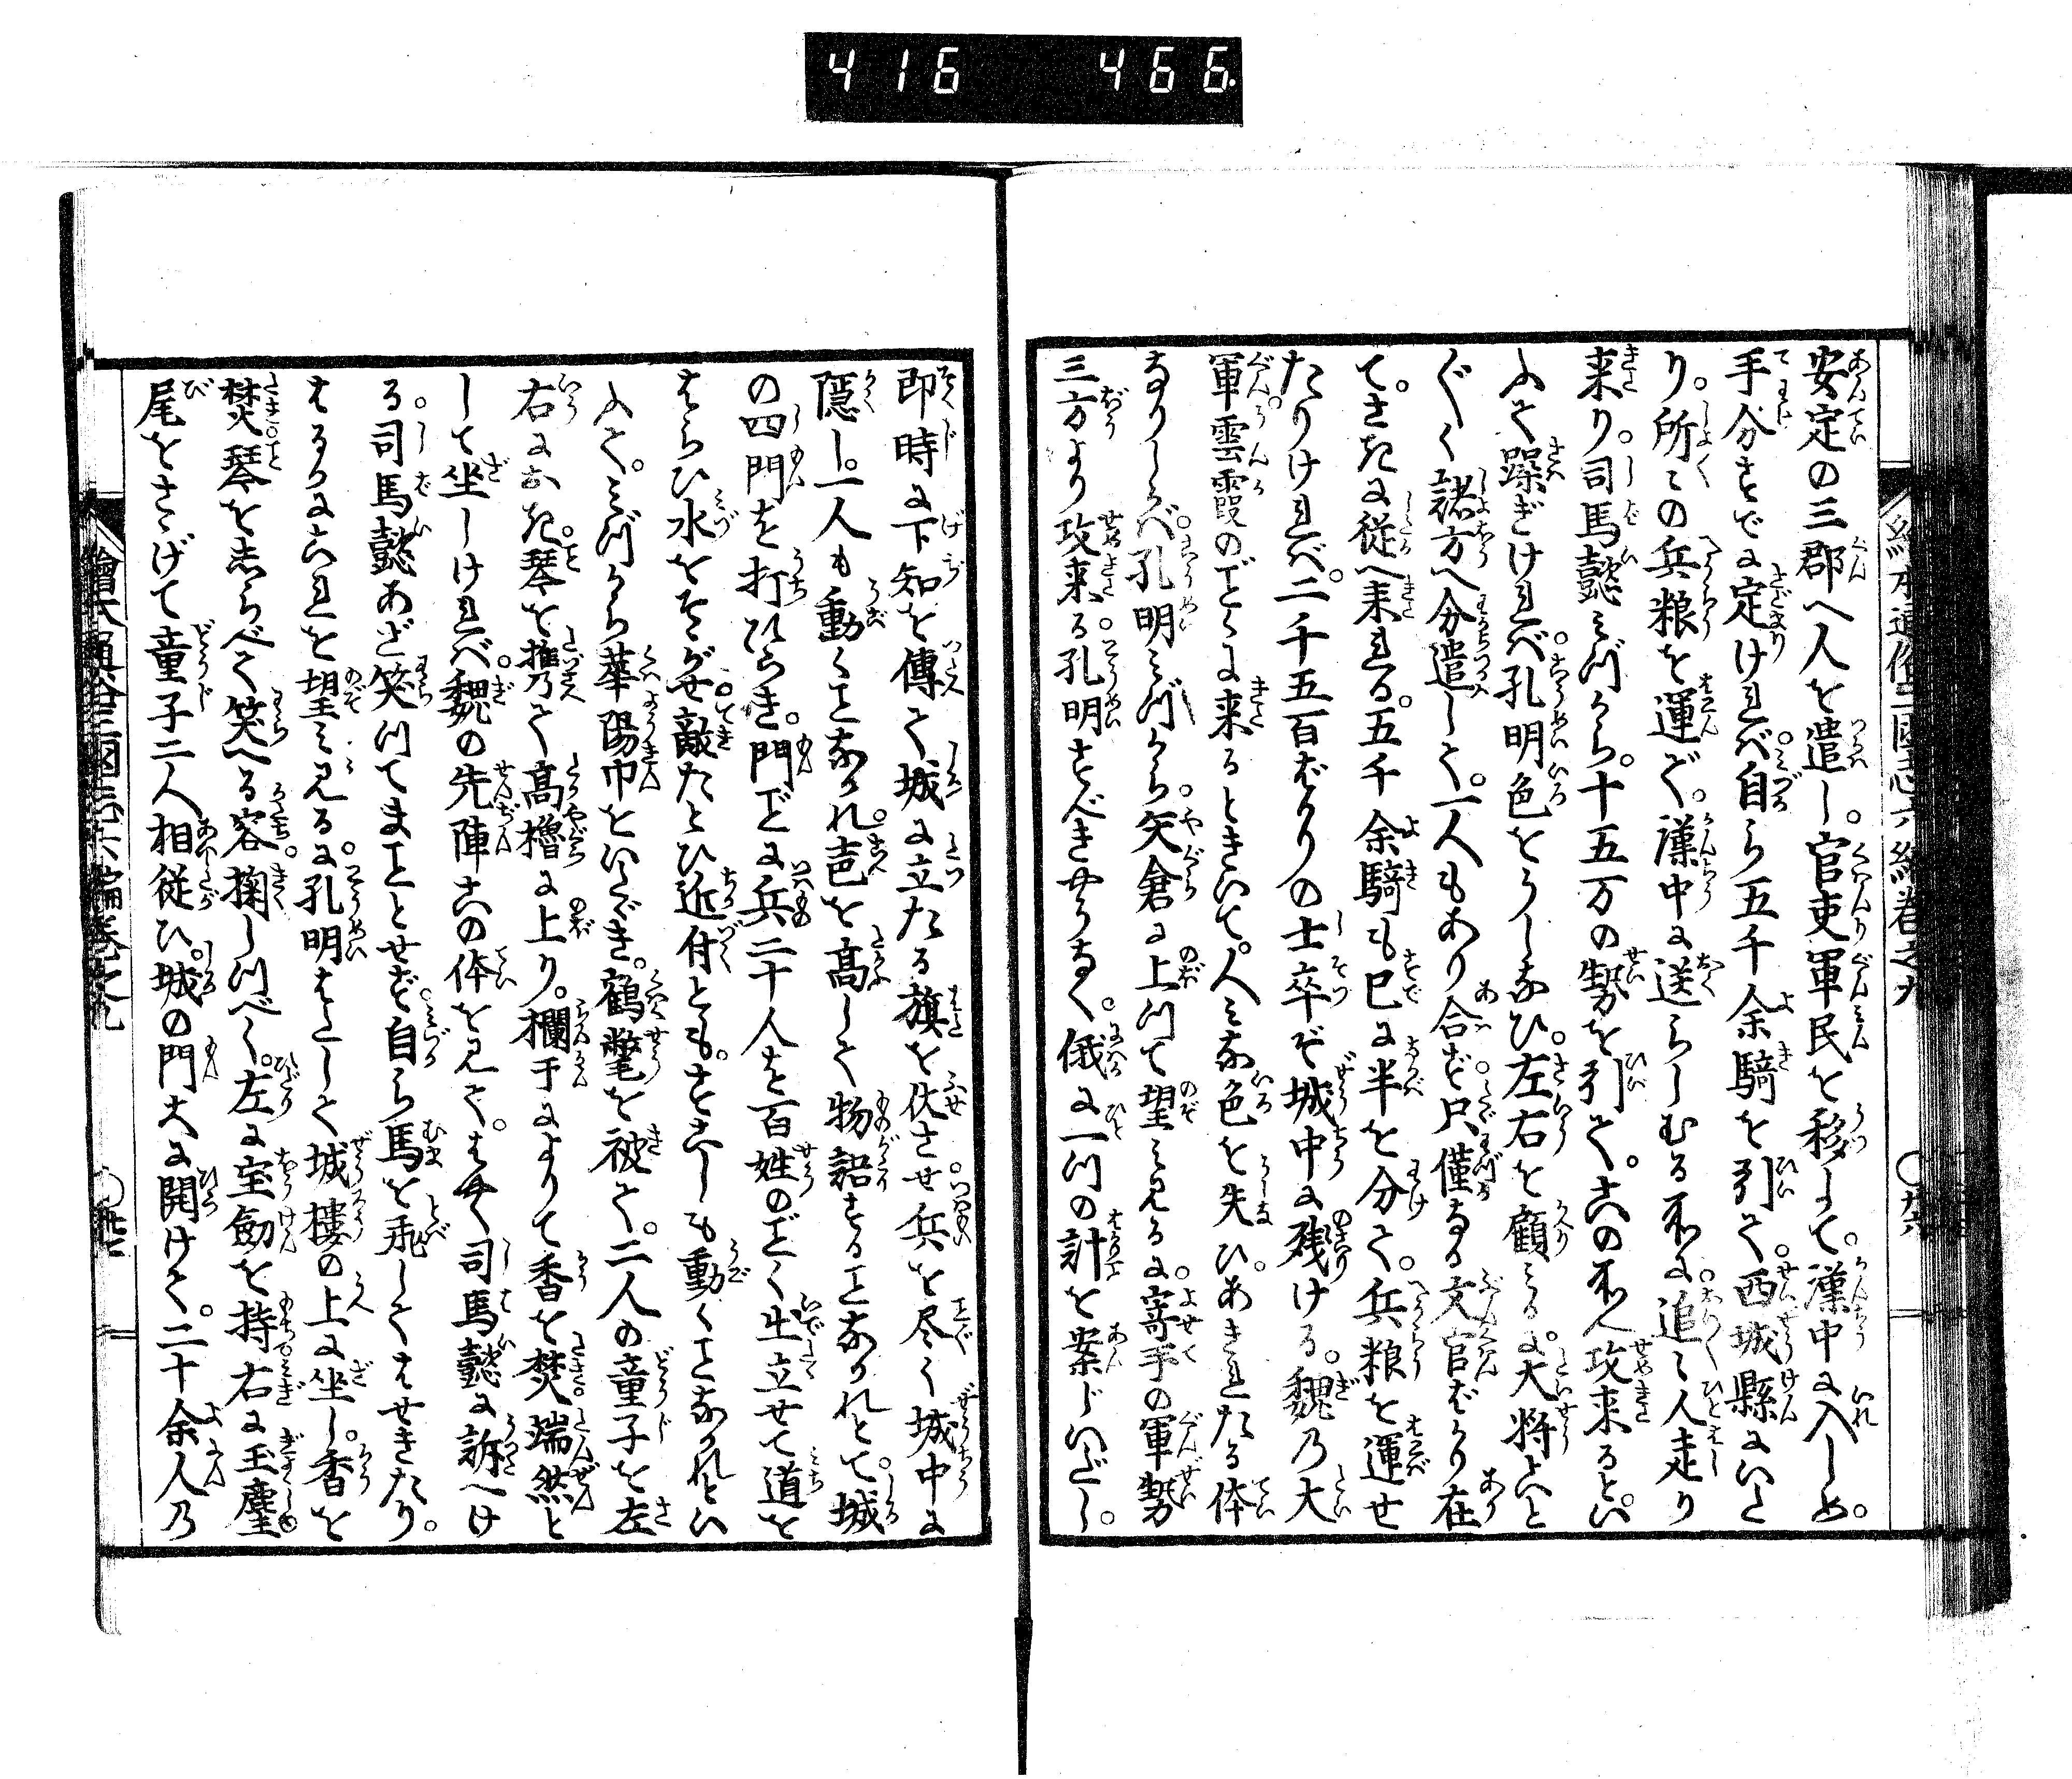 416 466
安定の三郡へ人を遣し。官吏軍民を移して。漢中に入しめ。
手分すでに定りければ。自ら五千余騎を引て。西城縣にいた
り。所々の兵粮を運ぎ。漢中に送らしむる所に。追々人走り
来り。司馬懿みづから。十五万の勢を引て。この所へ攻来るとい
ふて躁ぎければ。孔明色をうしなひ。左右を顧みるに。大将とい
ふべく諸方へ分遣して。一人もあり合ず。只僅なる文官ばかり在
て。さきに従へ来れる。五千余騎も已に半を分て。兵粮を運せ
たりければ。二千五百ばかりの士卒ぞ城中に残ける。魏乃大
軍雲霞のごとくに来るときいて。人みな色を失ひ。あきれたる体
なりしかば。孔明みづから。矢倉に上つて望み見るに。寄手の軍勢
三方より攻来る。孔明すべきやうなく。俄に一つの計を案じいだし。
即時に下知を傳て城に立たる旗を伏させ。兵を尽く城中に
隠し。一人も動くことなかれ。声を高して物語することなかれとて。城
の四門を打ひらき。門ごとに兵二十人を百姓のごとく出立せて道を
はらひ水をそゝがせ。敵たとひ近付とも。すこしも動くことなかれとい
ふて。みづから華陽巾をいたゞき。鶴氅を被て。二人の童子を左
右におき。琴を携て高櫓に上り。欄干によりて香を焚。端然と
して坐しければ。魏の先陣この体を見て。はやく司馬懿に訴へけ
る。司馬懿あざ笑つてまことゝせず。自ら馬を飛してはせきたり。
はるかにこれを望み見るに。孔明はたして城樓の上に坐し。香を
焚。琴をしらべて笑へる容。掬しつべく。左に宝劔を持。右に玉麈
尾をさゝげて童子二人相従ひ。城の門大に開けて。二十余人乃